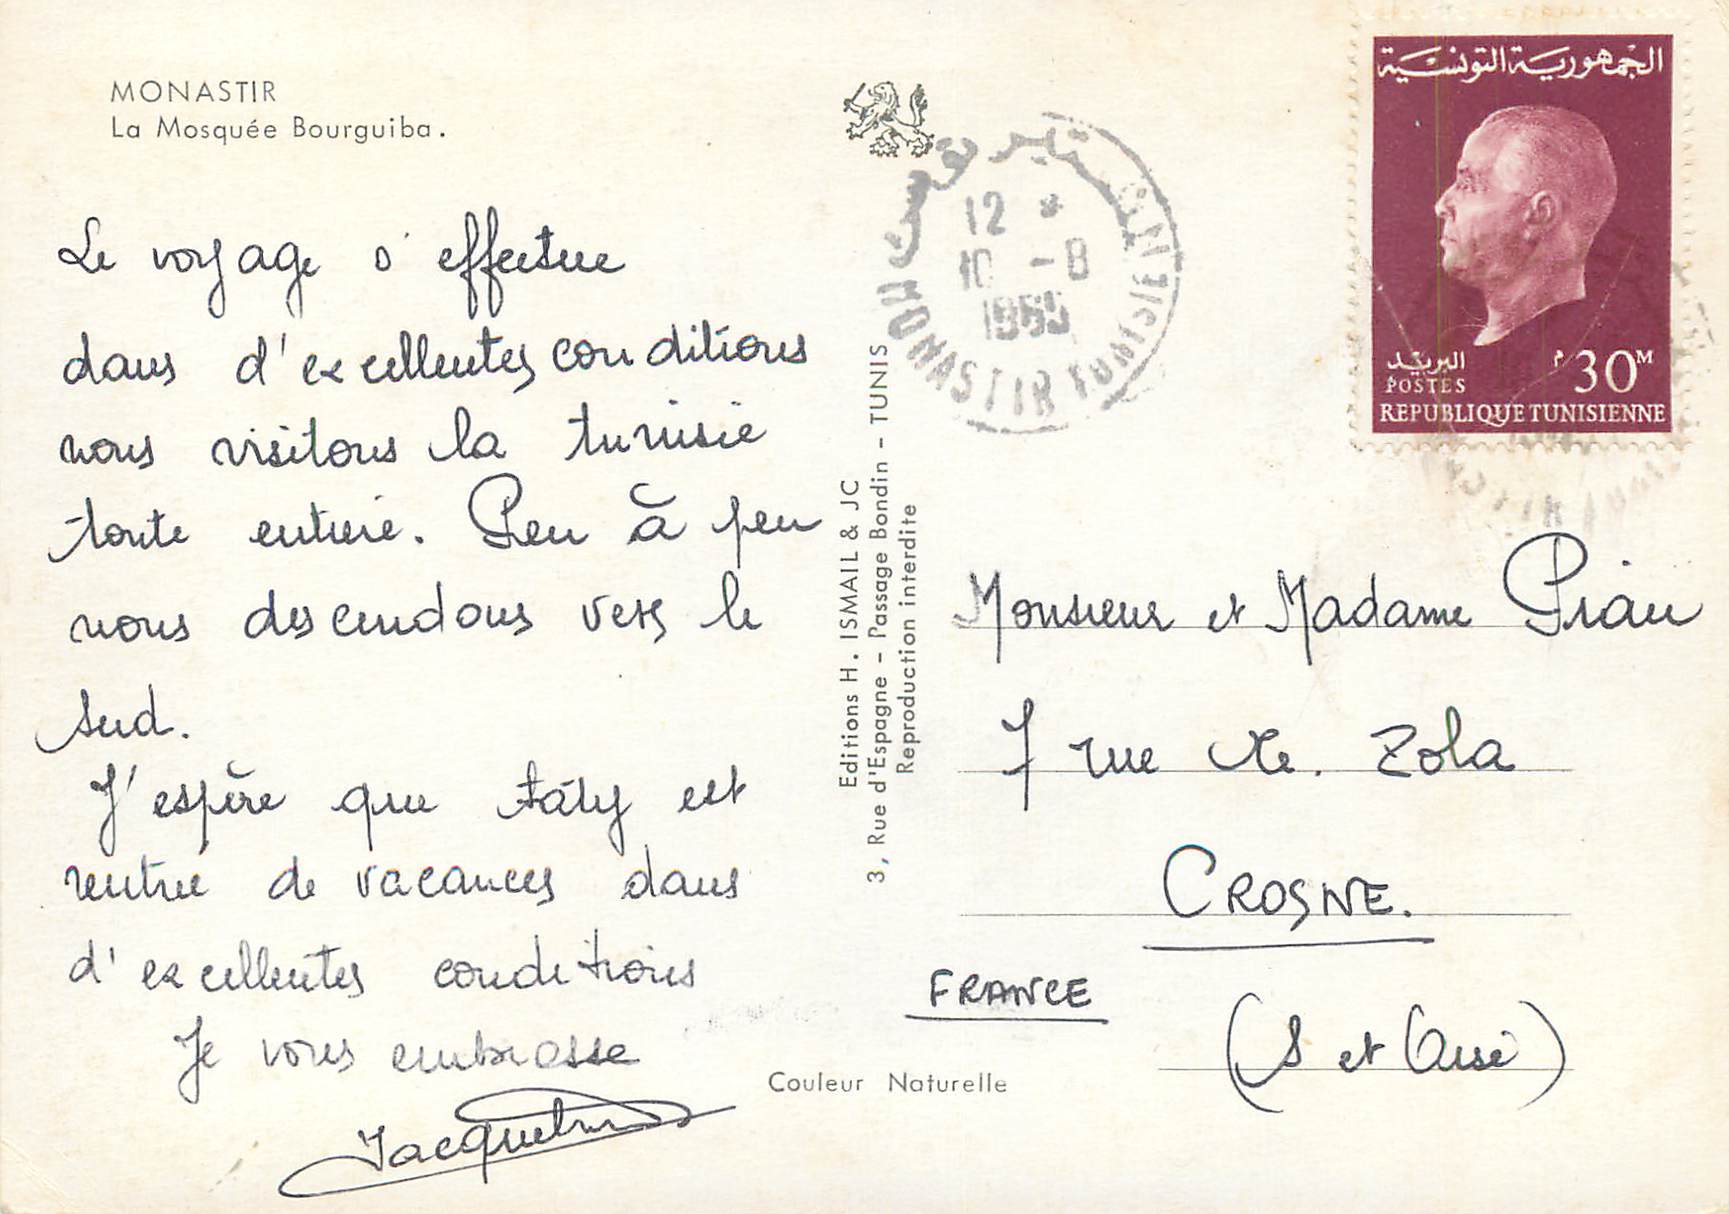 MONASTIR
La Mosquée Bourguiba.
Le voyage s'effectue
dans d'excellentes conditions
nous visitons la tunisie
toute entière. Peu à peu
nous descendons vers le
sud.
J'espère que
est
rentrée de vacances dans
d'excellentes conditions
Je vous embrasse
Editions H. ISMAIL & JC
3, Rue d'Espagne - Passage Bondin - TUNIS
Reproduction interdite
Couleur Naturelle
12 *
10 -8
MONASTIR TUNISIE
الجمهورية التونسية
البريد
POSTES
م30M
REPUBLIQUE TUNISIENNE
Monsieur et Madame
7 rue Zola
CROSNE.
FRANCE
(S et Oise)